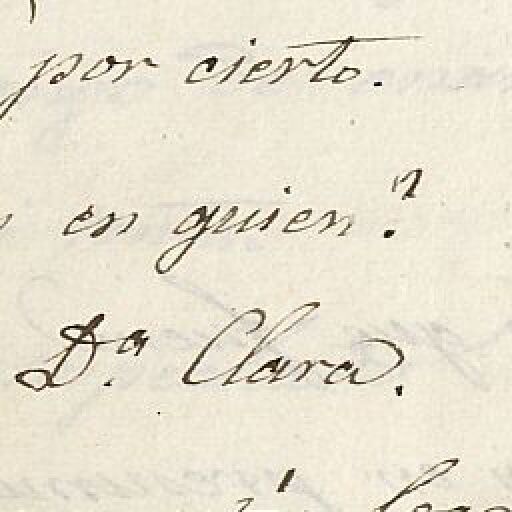 por cierto.
en quien?
D.ª Clara.